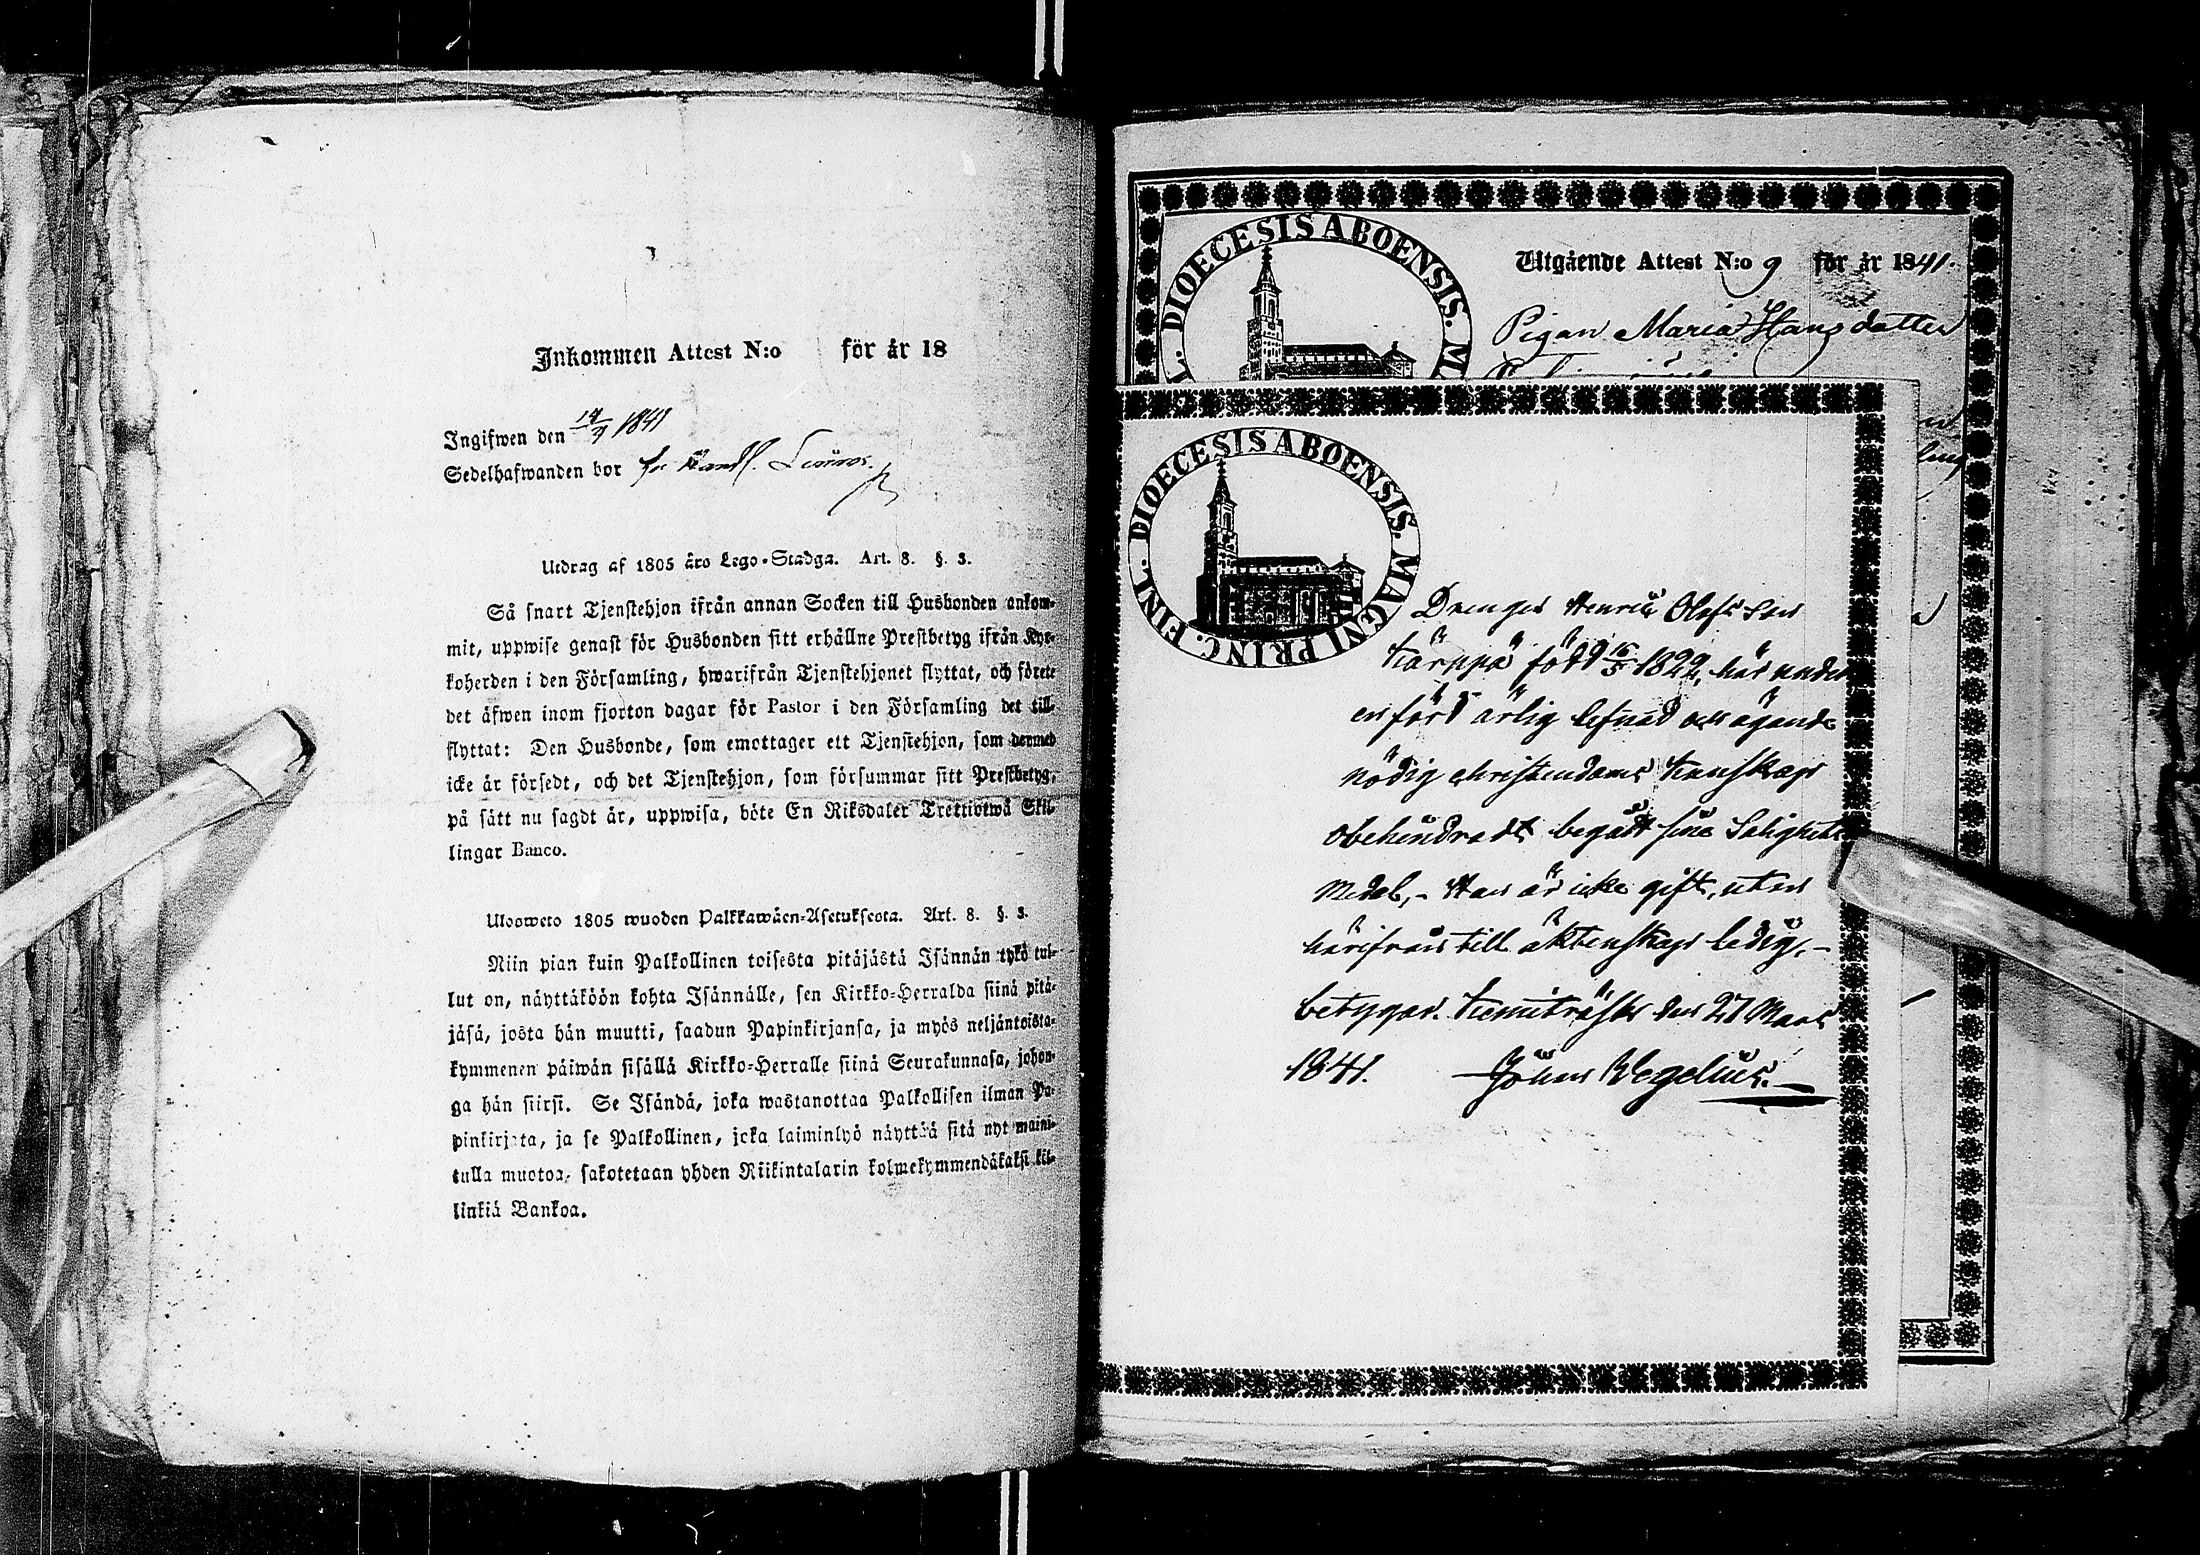 Inkommen Attest N:o för år 18
Ingifwen den 14/9 1841
Sedelhafwanden bor hr Handl.
Utdrag af 1805 års Lego-Stadga. Art. 8. §. 3.
Så snart Tjenstehjon ifrån annan Socken till Husbonden ankom-
mit, uppwise genast för Husbonden sitt erhållne Prestbetyg ifrån Kyr-
koherden i den Församling, hwarifrån Tjenstehjonet flyttat, och förete
det äfwen inom fjorton dagar för Pastor i den Församling det till-
flyttat: Den Husbonde, som emottager ett Tjenstehjon, som dermed
icke är försedt, och det Tjenstehjon, som försummar sitt Prestbetyg,
på sätt nu sagdt är, uppwisa, böte En Riksdaler Trettiotwå Skil-
lingar Banco.
Ulosweto 1805 wuoden Palkkawäen-Asetuksesta. Art. 8. §. 3.
Niin pian kuin Palkollinen toisesta pitäjästä Isännän tykö tul-
lut on, näyttäköön kohta Isännälle, sen Kirkko-Herralda siinä pitä-
jäsä, josta hän muutti, saadun Papinkirjansa, ja myös neljäntoista-
kymmenen päiwän sisällä Kirkko-Herralle siinä Seurakunnasa, johon-
ga hän siirsi. Se Isändä, joka wastanottaa Palkollisen ilman Pa-
pinkirjata, ja se Palkollinen, joka laiminlyö näyttää sitä nyt maini-
tulla muotoa, sakotetaan yhden Riikintalarin kolmekymmendäkaksi kil-
linkiä Bankoa.
DIOECESIS ABOENSIS. MA
Utgående Attest N:o 9 för år 1841.
Pigan Maria Hansdotter
DIOECESIS ABOENSIS. MAGNI PRINC. FINL.
Drengen Henric Olofsson
Kärppä född 16/5 1822, har under
en förd ärlig lefnad och ägande
nödig christendoms kunskap
obehindradt begått sine Salighets
Medel, - Han är icke gift, utan
härifrån till äktenskap ledig, -
betygar. Kemiträsk den 27 Mars
1841. Johan Wegelius.